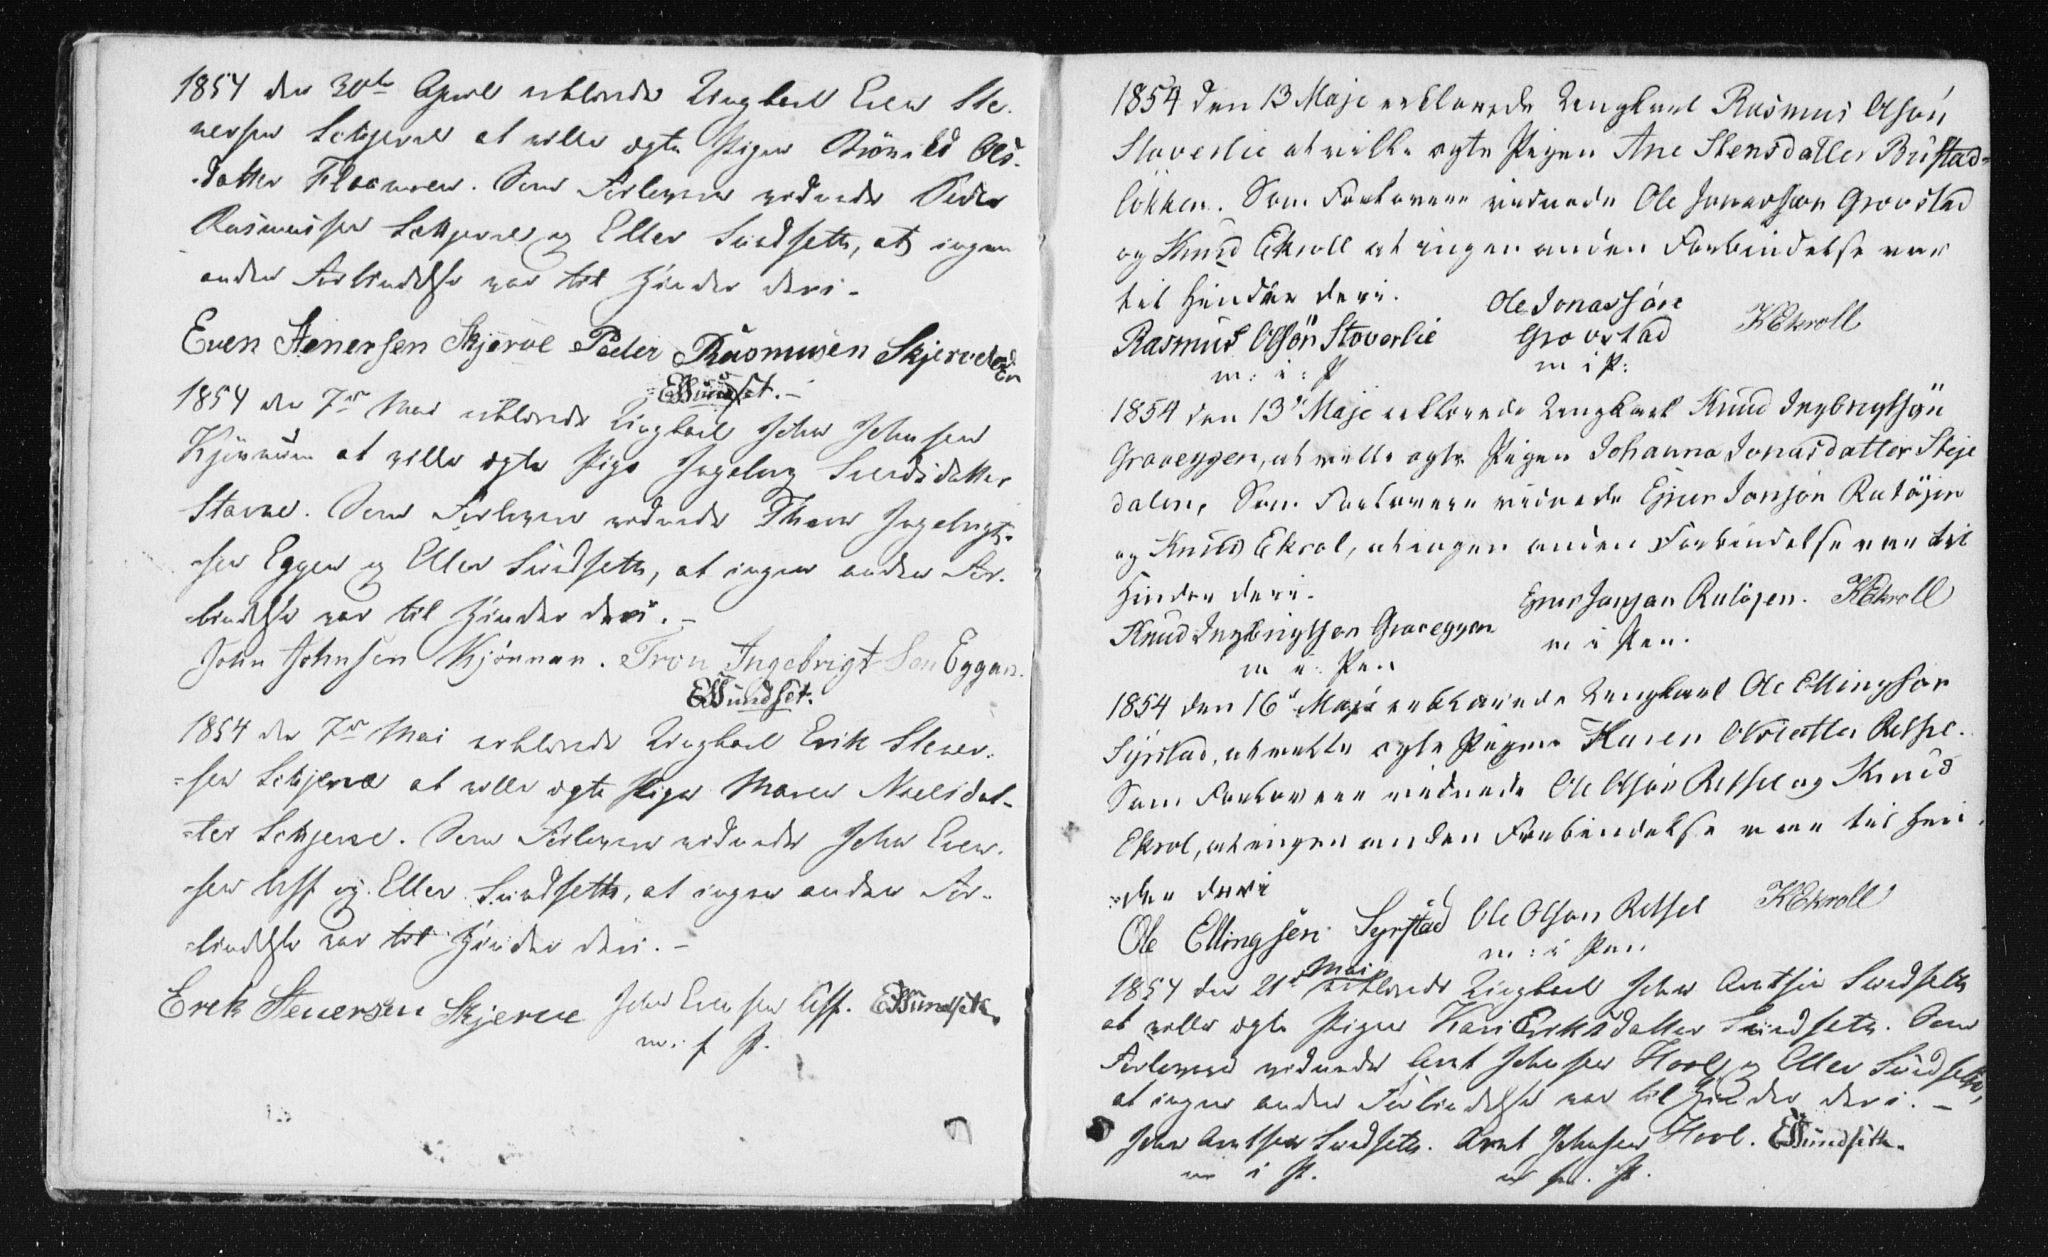 1854 den 30te April erklærede Ungkarl Even Ste-
nersen Schjerve at ville ægte Pigen Brönild Ols-
datter Flaamoen. Som Forlover vidnede Peder
Rasmussen Schjerve og Eller Sundseth, at ingen
anden Forbindelse var til Hinder deri.
Even Stenersen Skjerve Peder Rasmusen Skjerve
ESundset.
1854 den 7de Mai erklærede Ungkarl John Johnsen
Kjönnum at ville ægte Pige Ingeborg Sivertsdatter
Stavne. Som Forlover vidnede Thron Ingebrigt-
-sen Eggen og Eller Sundseth, at ingen anden For-
-bindelse var til Hinder deri.-
John Johnsen Kjönnan. Tron Ingebrigt Sen Eggan.
ESundset.
1854 den 7de Mai erklærede Ungkarl Erik Stener-
-sen Schjerve at ville ægte Pigen Maren Neelsdat-
-ter Schjerve. Som Forlover vidnede John Even-
-sen Uff og Eller Sundseth, at ingen anden For-
-bindelse var til Hinder deri.-
Erek Stenersen Skjerve John Evensen Uff. ESundseth.
m. f P.
1854 den 13 Maje erklærede Ungkarl Rasmus Olsön
Stoverlie at ville ægte Pigen Ane Stensdatter Bustad-
lökken. Som Forlovere vidnede Ole Jonassøn Grovstad
og Knud Ekroll at ingen anden Forbindelse var
til Hinder deri.
Rasmus Olsön Stoverlie
m: i: P
Ole Jonassön
Grovstad
m i P:
KEkroll
1854 den 13de Maje erklærede Ungkarl Knud Ingbrigtsön
Graveggen, at ville ægte Pigen Johanna Jonasdatter Steje
dalen, Som Forlovere vidnede Ejner Jonsön Rutöjen
og Knud Ekrol, at ingen anden Forbindelse var til
Hinder deri.
Knud Ingbrigtsen Graveggen
m i: Pen
Ejner Jonsøn Rutøjen. KEkroll
m i Pen.
1854 den 16de Maje erklærede Ungkarl Ole Ellingsøn
Syrstad, at ville ægte Pigen Karen Olsdatter Retsel.
Som Forlovere vidnede Ole Olsön Retsel og Knud
Ekrol, at ingen anden Forbindelse var til Hin-
-der deri
Ole Ellingsen Syrstad Ole Olsøn Retsel KEkroll
m: i Pen
1854 den 21de Mai erklærede Ungkarl John Arntsen Sundseth
at ville ægte Pigen Kari Eriksdatter Sundseth. Som
Forlover vidnede Arnt Johnsen Hovl og Eller Sundseth,
at ingen anden Forbindelse var til Hinder deri.-
John Arntsen Sundseth. Arnt Johnsen Hovl. ESundseth.
m i P. m f. P.